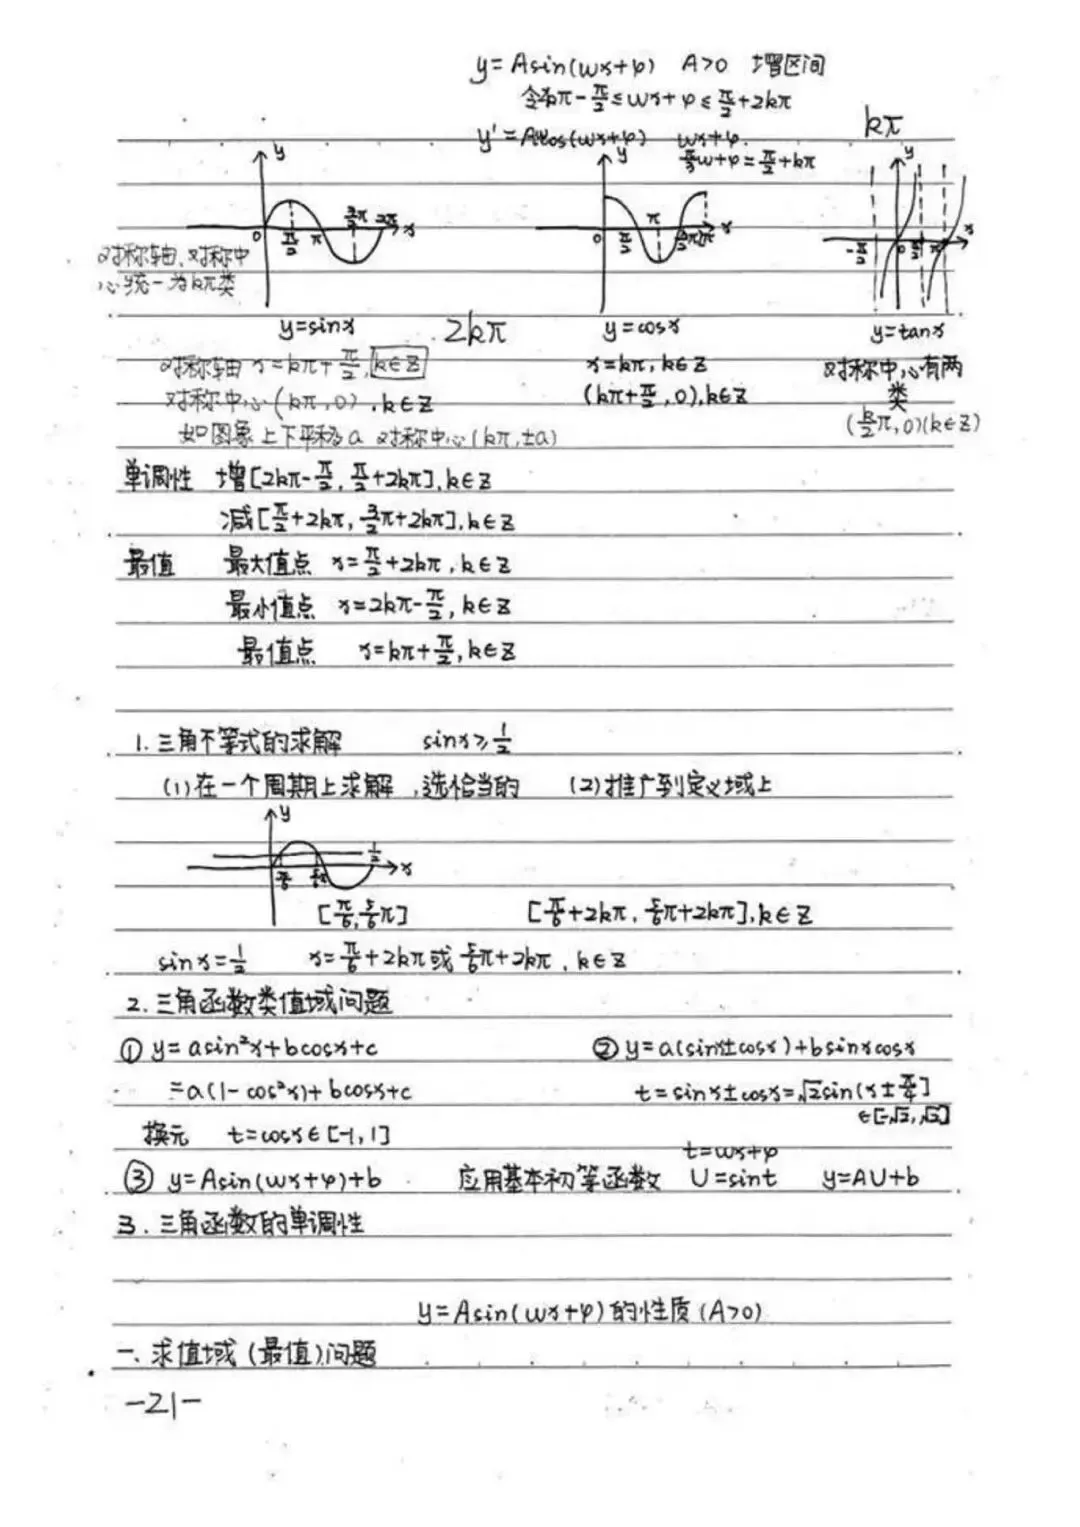 y=Asin(wx+φ) A>0 增区间
令2kπ-π/2≤wx+φ≤π/2+2kπ
y'=Awcos(wx+φ) wx+φ
w+φ=π/2+kπ
kπ
y y y
0 π/2 π 3/2π 2π x
0 π/2 π 3/2π 2π x
-π/2 0 π/2 π x
对称轴、对称中
心统一为kπ类
y=sinx 2kπ y=cosx y=tanx
对称轴 x=kπ+π/2,k∈Z x=kπ,k∈Z 对称中心有两
类
对称中心(kπ,0),k∈Z (kπ+π/2,0),k∈Z (k/2π,0)(k∈Z)
如图象上下平移a 对称中心(kπ,±a)
单调性 增[2kπ-π/2,π/2+2kπ],k∈Z
减[π/2+2kπ,3/2π+2kπ],k∈Z
最值 最大值点 x=π/2+2kπ,k∈Z
最小值点 x=2kπ-π/2,k∈Z
最值点 x=kπ+π/2,k∈Z
1.三角不等式的求解 sinx≥1/2
(1)在一个周期上求解,选恰当的 (2)推广到定义域上
y
1/2
π/6 5/6π x
[π/6,5/6π] [π/6+2kπ,5/6π+2kπ],k∈Z
sinx=1/2 x=π/6+2kπ或5/6π+2kπ,k∈Z
2.三角函数类值域问题
① y=asin²x+bcosx+c ② y=a(sinx±cosx)+bsinxcosx
=a(1-cos²x)+bcosx+c t=sinx±cosx=√2sin(x±π/4]
∈[-√2,√2]
换元 t=cosx∈[-1,1]
t=wx+φ
③ y=Asin(wx+φ)+b 应用基本初等函数 U=sint y=AU+b
3.三角函数的单调性
y=Asin(wx+φ)的性质(A>0)
一、求值域(最值)问题
-21-